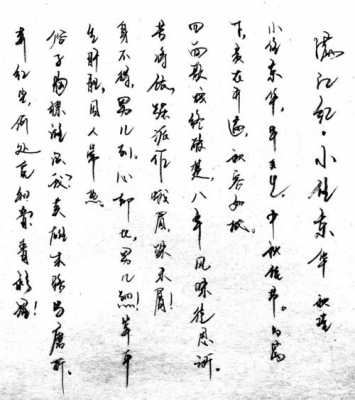 满江红·小住京华 秋瑾
小住京华,早又是,中秋佳节。为篱
下,黄花开遍,秋容如拭。
四面歌残终破楚,八年风味徒思浙。
苦将侬,强派作蛾眉,殊未屑!
身不得,男儿列,心却比,男儿烈!算平
生肝胆,因人常热。
俗子胸襟谁识我?英雄末路当磨折。
莽红尘,何处觅知音?青衫湿!